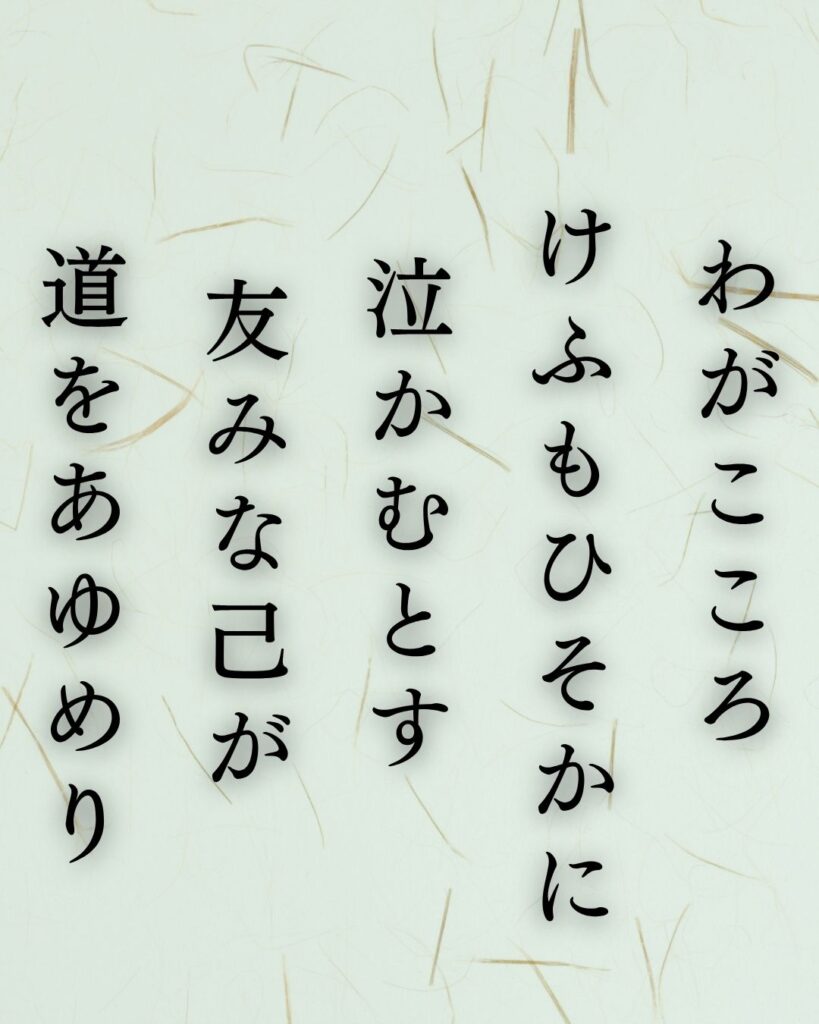 わがこころ
けふもひそかに
泣かむとす
友みな己が
道をあゆめり